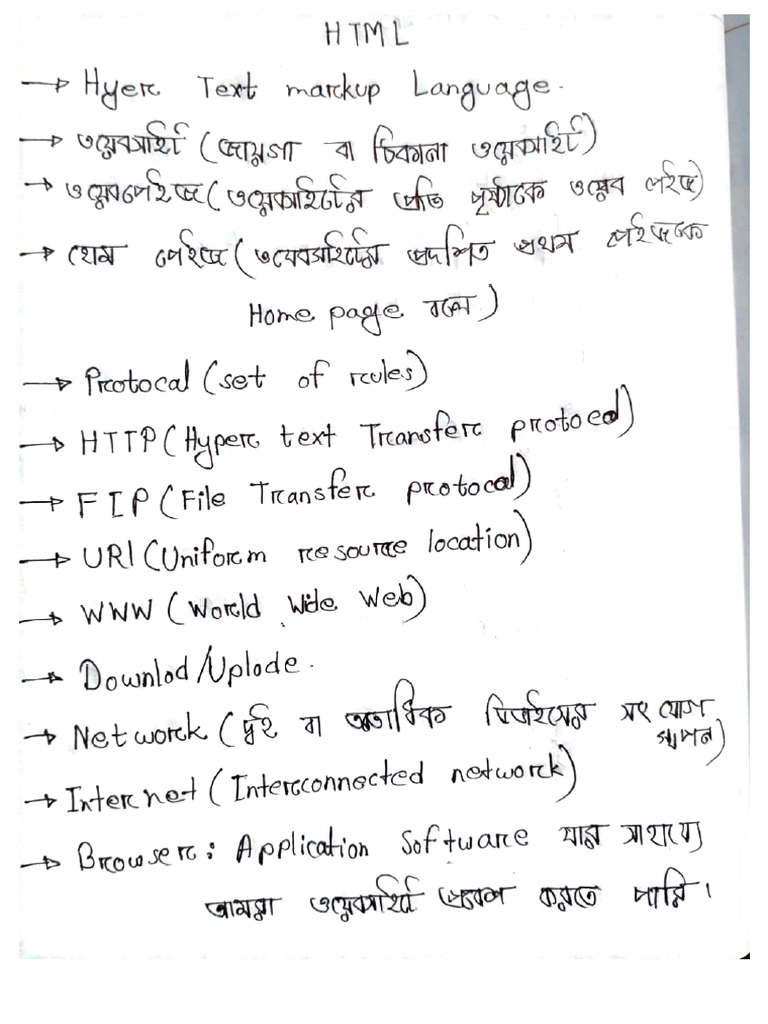 HTML
→ Hyer Text markup Language.
→ ওয়েবসাইট (জায়গা বা ঠিকানা ওয়েবসাইট)
→ ওয়েবপেইজ (ওয়েবসাইটের প্রতি পৃষ্ঠাকে ওয়েব পেইজ)
→ হোম পেইজ (ওয়েবসাইটের প্রদর্শিত প্রথম পেইজকে
Home page বলে)
→ Protocal (set of rules)
→ HTTP (Hyper text Transfer protocol)
→ FTP (File Transfer protocol)
→ URl (Uniform resource location)
→ WWW (World Wide Web)
→ Downlod/Uplode.
→ Network (দুই বা ততোধিক ডিভাইসের সংযোগ
স্থাপন)
→ Internet (Interconnected network)
→ Browser: Application Software যার সাহায্যে
আমরা ওয়েবসাইট প্রবেশ করতে পারি।